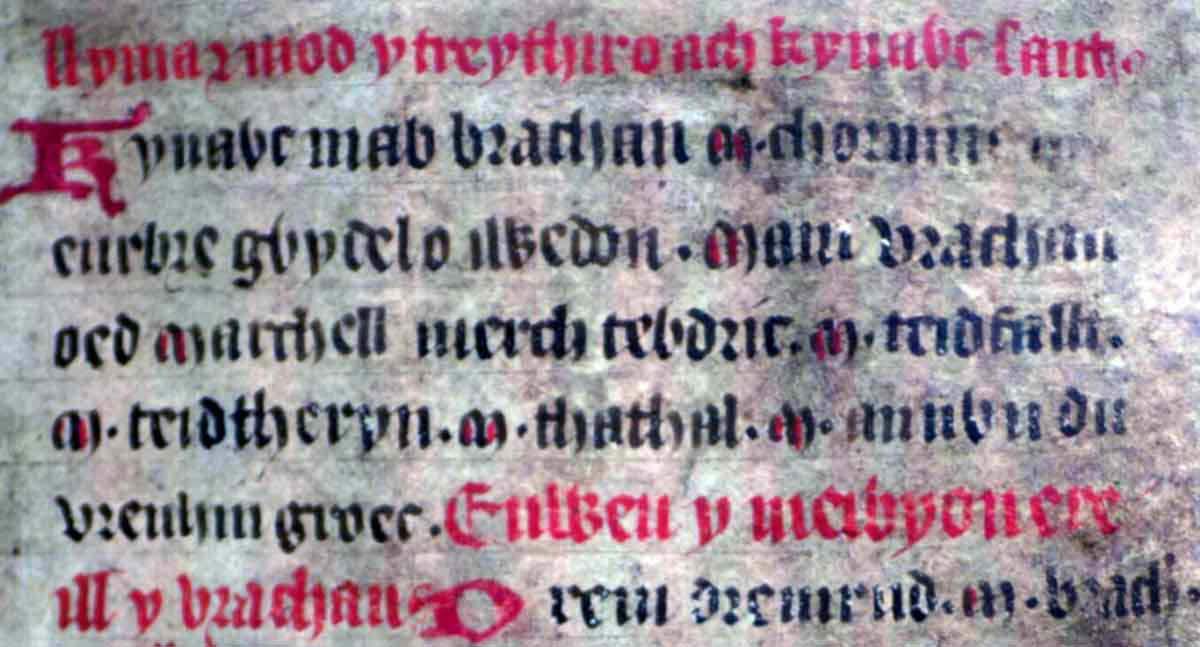 llyma r mod y treythir o ach kynavc sant.
Kynavc mab brachan m. chormuc
eurbre gvydel o iwedon. Mam vrachan
oed marchell merch tebdric. m. teidfallt.
m. teidtheryn. m. thathal. m. annvn du
vrenhin groec. Enweu y meibyon ere
ill y brachan: D rem dremrud. m. brach